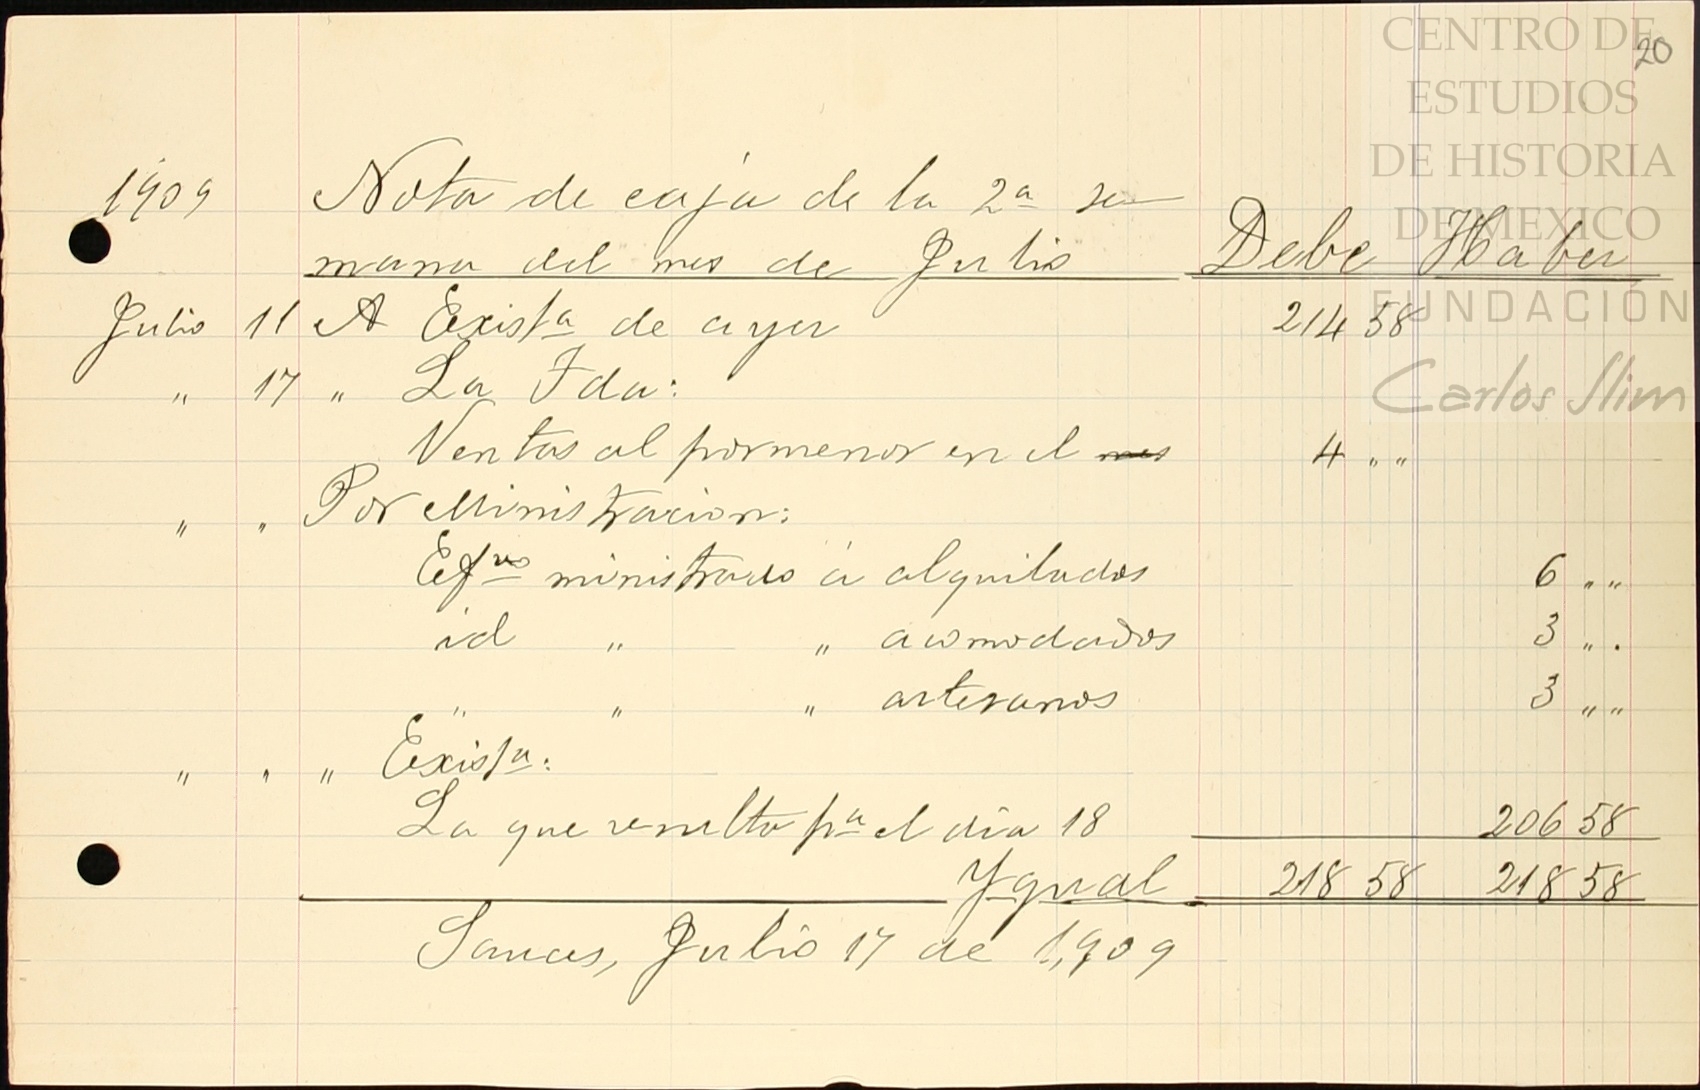 CENTRO DE
ESTUDIOS
DE HISTORIA
DE MEXICO
FUNDACIÓN
Carlos Slim
20
1909 Nota de caja de la 2ª se
mana del mes de Julio Debe Haber
Julio 11 A Existª de ayer 214 58
" 17 " La Fda:
Ventas al pormenor en el mes 4 " "
" " Por Ministracion:
Efvo ministrado á alquilados 6 " "
id " " acomodados 3 " "
" " " artesanos 3 " "
" " " Existª:
La que resulta pª el dia 18 206 58
Ygual 218 58 218 58
Sauces, Julio 17 de 1,909